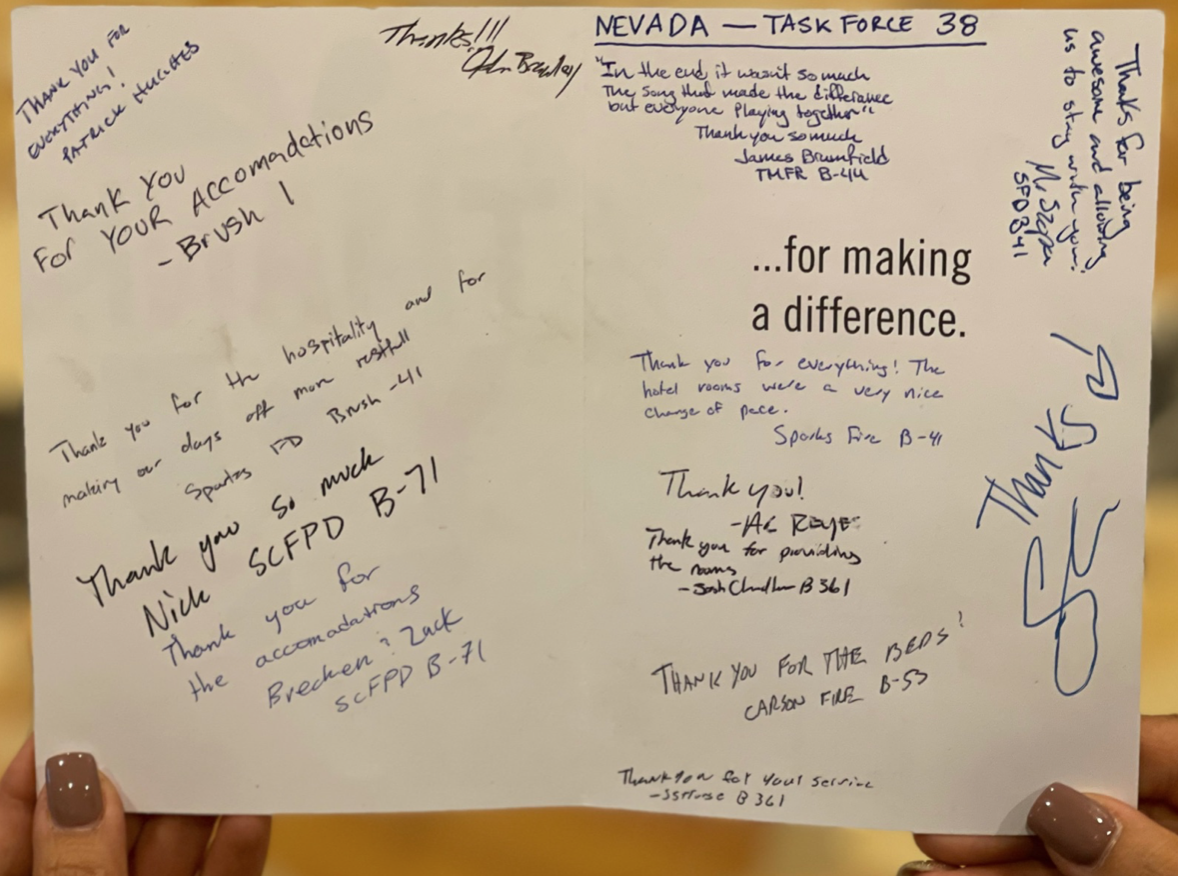 THANK YOU FOR
EVERYTHING!
PATRICK HUGHES
Thanks!!!
John Bradley
THANK YOU
FOR YOUR ACCOMADATIONS
- BRUSH 1
Thank you for the hospitality and for
making our days off more restfull
Sparks FD Brush -41
Thank you so much
Nick SCFPD B-71
Thank you for
the accomadations
Brecken & Zack
SCFPD B-71
NEVADA — TASK FORCE 38
"In the end it wasn't so much
the song that made the differance
but everyone Playing together"
Thank you so much
James Brumfield
TMFR B-44
Thanks for being
awesome and allowing
us to stay with you!
SFD B41
...for making
a difference.
Thank you for everything! The
hotel rooms were a very nice
change of pace.
Sparks Fire B-41
Thanks
Thank you!
Thank you for providing
the rooms
-Josh B361
THANK YOU FOR THE BEDS!
CARSON FIRE B-53
Thank you for your service
B361